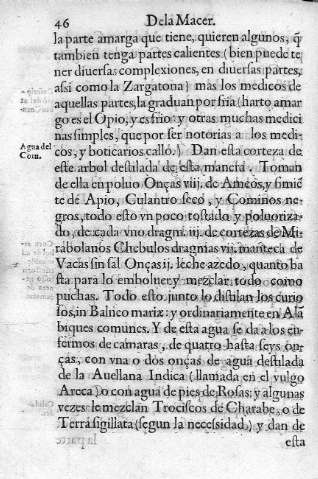 46 De la Macer.
la parte amarga que tiene, quieren algunos, q̃
tambien tenga partes calientes (bien puede te
ner diuersas complexiones, en diuersas partes,
asi como la Zargatona) mas los medicos de
aquellas partes, la graduan por fria (harto amar
go es el Opio, y es frio: y otras muchas medici
nas simples, que por ser notorias a los medi-
cos, y boticarios callo.) Dan esta corteza de
Agua del
Com.
este arbol destilada de esta manera. Toman
de ella en poluo Onças viij. de Ameos, y simiẽ
te de Apio, Culantro seco, y Cominos ne-
gros, todo esto vn poco tostado y poluoriza-
do, de cada vno dragm. iij. de cortezas de Mi
rabolanos Chebulos dragmas vij. manteca de
Vacas sin sal Onças ij. leche azedo, quanto ba
sta para lo emboluer y mezclar todo como
puchas. Todo esto junto lo distilan los curio
sos, in Balneo mariæ: y ordinariamente en Alã
biques comunes. Y de esta agua se da a los en-
fermos de camaras, de quatro hasta seys on-
ças, con vna o dos onças de agua destilada
de la Auellana Indica (llamada en el vulgo
Areca) o con agua de pies de Rosas: y algunas
vezes le mezclan Trociscos de Charabe, o de
Terra sigillata (segun la necessidad,) y dan de
esta